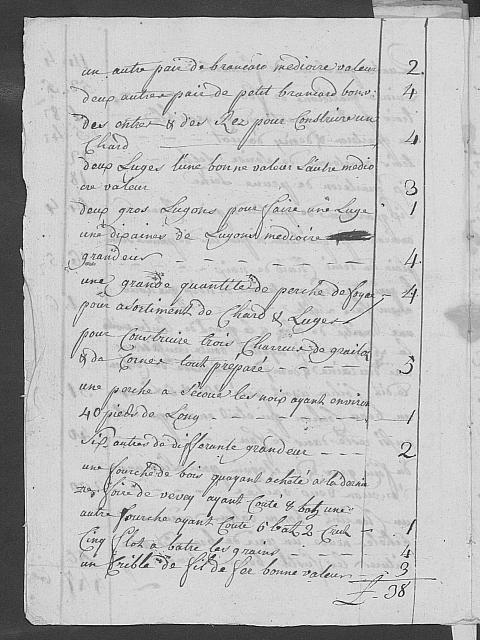 un autre pair de brancard medioire valeur 2
deux autres pair de petit brancard bons 4
des ontres & des Rez pour Construire un
Chard 4
deux Luges l'une bonne valeur L'autre medio
cre valeur 3
deux gros Lugons pour faire une Luge 1
une dixaines de Lugons medioire
grandeur 4
une grande quantité de perche de foyar 4
pour asortiment de Chard & Luges
pour Construire trois Charrues de
& de Cornes tout preparé 5
une perche a Secoué les noix ayant environ
40 pieds de Long 1
Six autres de differante grandeur 2
une fourche de bois quayant acheté a la derni
re foire de vevey ayant Couté 8 batz une
autre fourche ayant Couté 6 batz 2 Crutz 1
Cinq flot a batre les grains 4
un Crible de fil de fer bonne valeur 3
£ 38